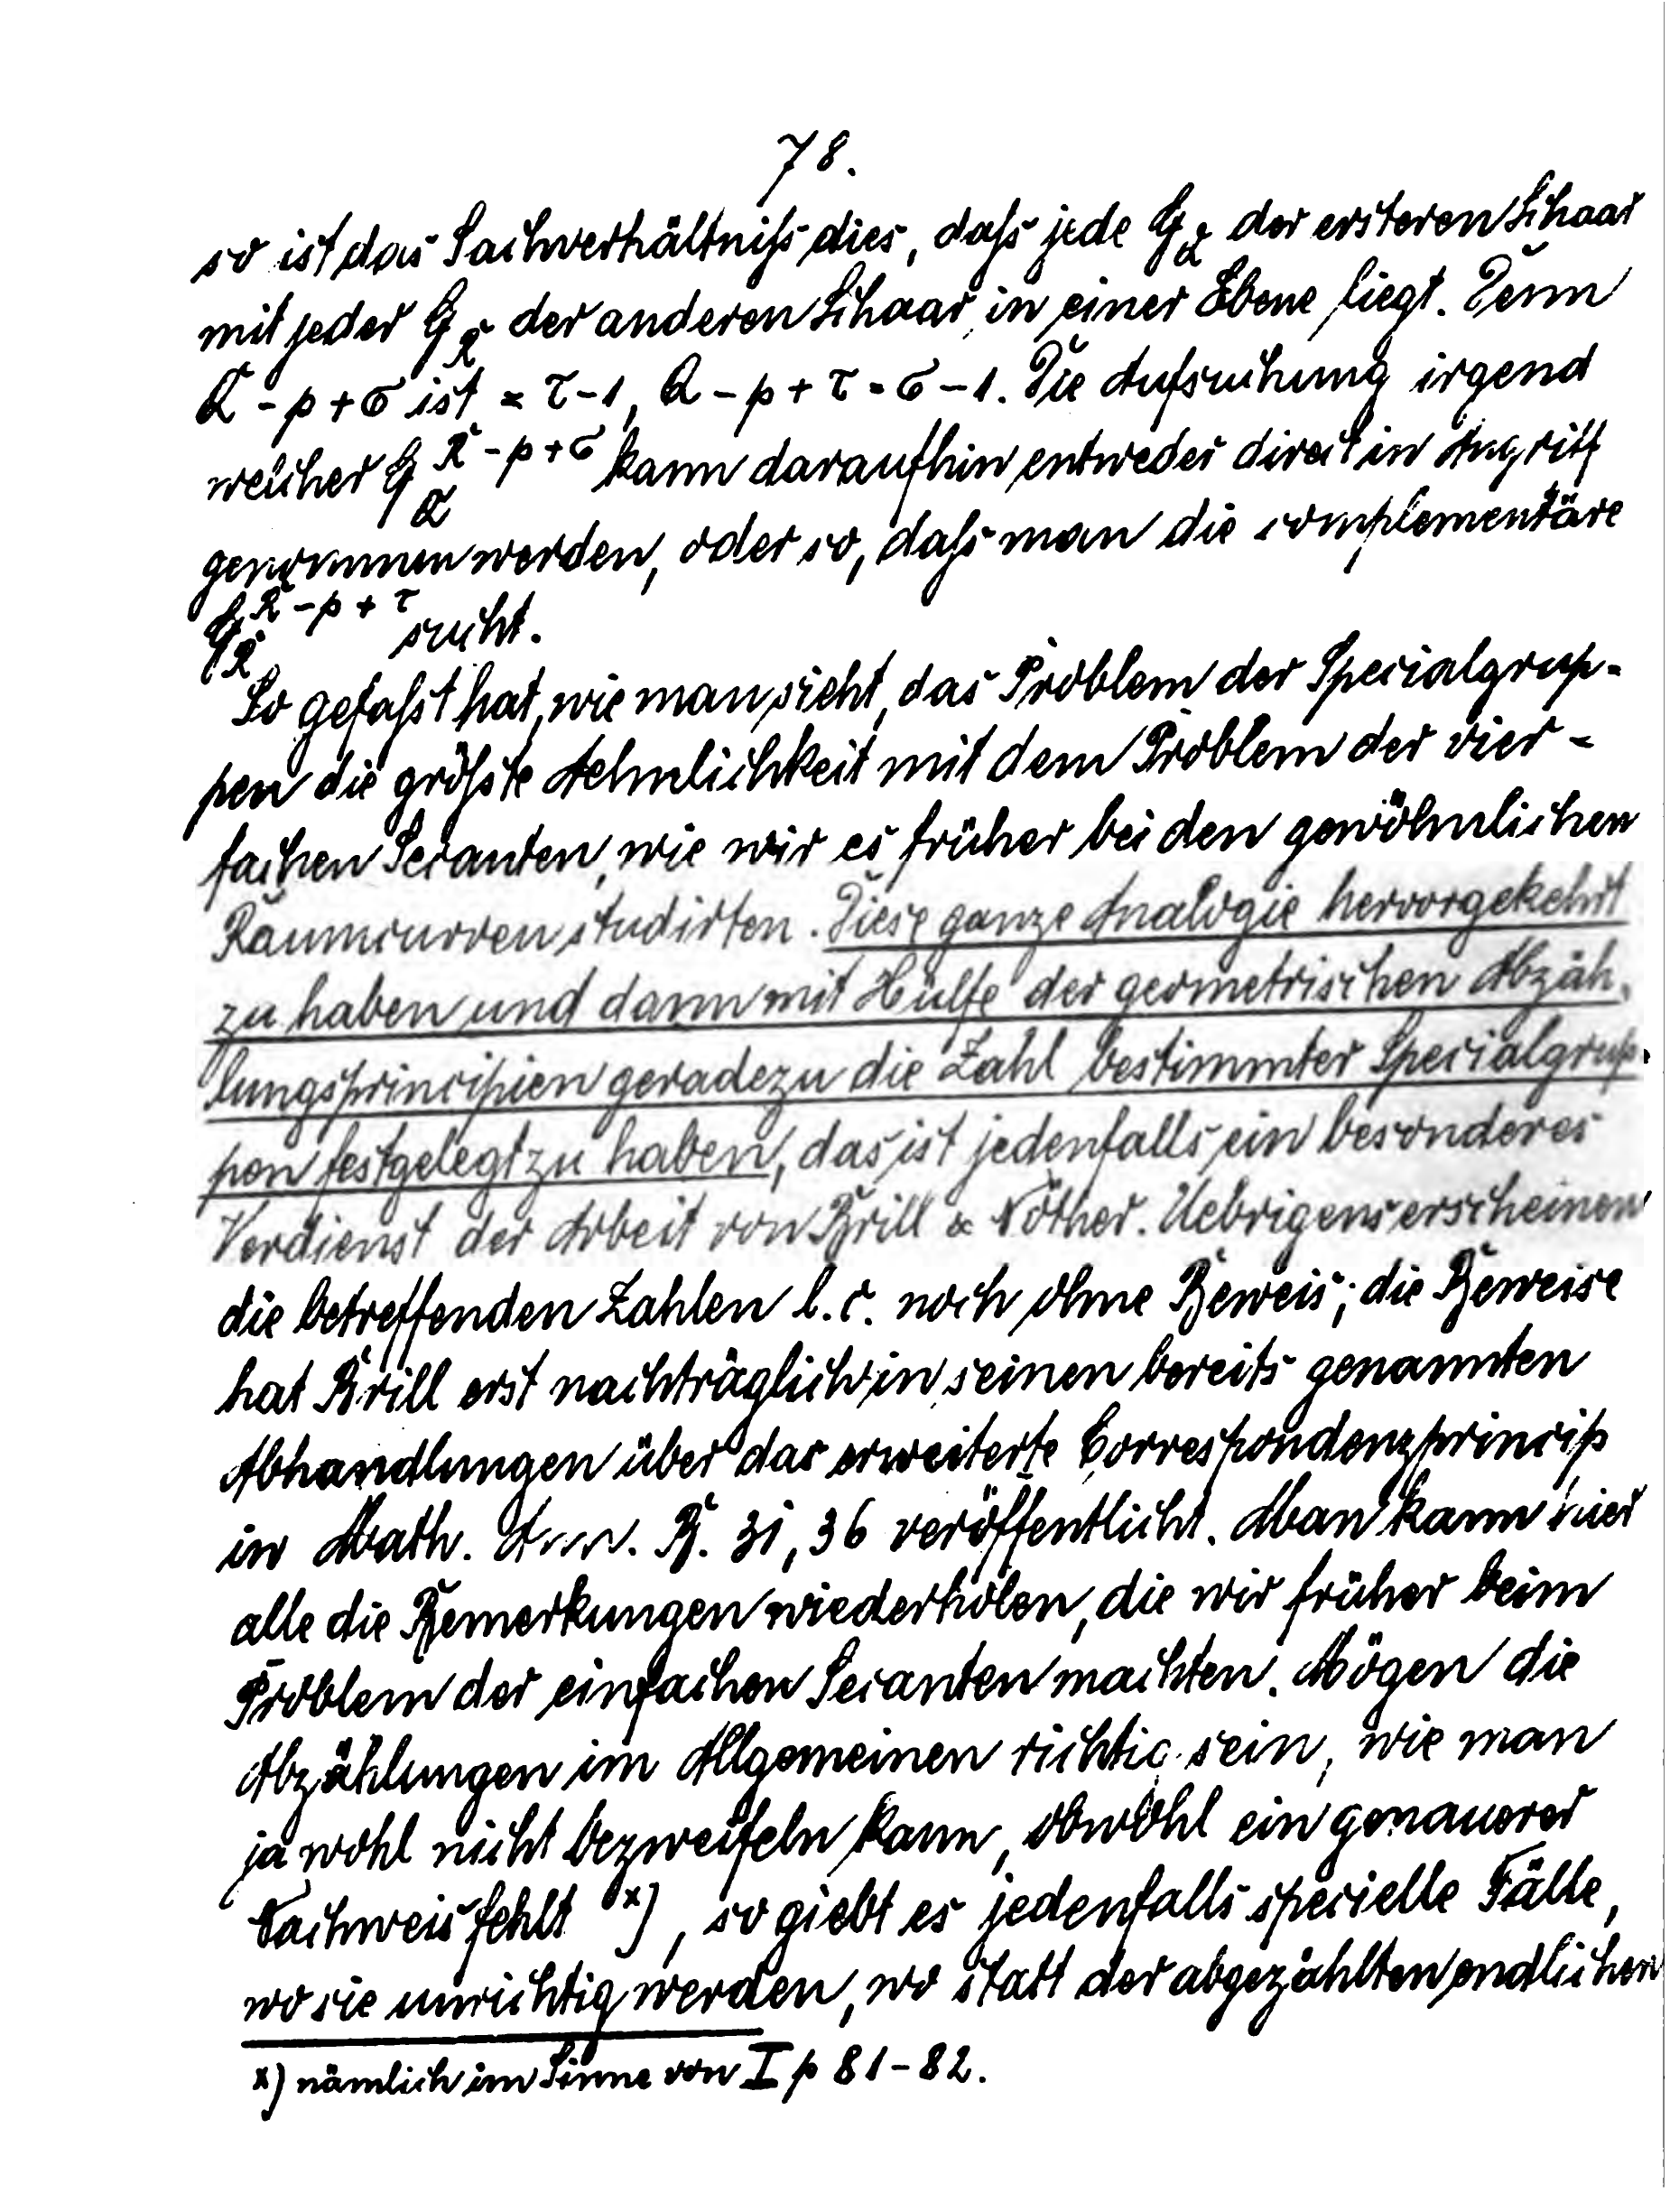 78.
so ist das Sachverhältniſs dies, daſs jede G_Q der ersteren Schaar
mit jeder G_R der anderen Schaar in einer Ebene liegt. Denn
Q - p + σ ist = τ - 1, R - p + τ = σ - 1. Die Aufsuchung irgend
welcher G_Q^{Q - p + σ} kann daraufhin entweder direct in Angriff
genommen werden, oder so, daſs man die complementäre
G_R^{R - p + τ} sucht.
So gefaſst hat, wie man sieht, das Problem der Specialgrup-
pen die gröſste Aehnlichkeit mit dem Problem der vier-
fachen Secanten, wie wir es früher bei den gewöhnlichen
Raumcurven studirten. Diese ganze Analogie hervorgekehrt
zu haben und dann mit Hülfe der geometrischen Abzäh-
lungsprincipien geradezu die Zahl bestimmter Specialgrup-
pen festgelegt zu haben, das ist jedenfalls ein besonderes
Verdienst der Arbeit von Brill & Nöther. Uebrigens erscheinen
die betreffenden Zahlen l. c. noch ohne Beweis; die Beweise
hat Brill erst nachträglich in seinen bereits genannten
Abhandlungen über das erweiterte Correspondenzprincip
in Math. Ann. B. 31, 36 veröffentlicht. Man kann hier
alle die Bemerkungen wiederholen, die wir früher beim
Problem der einfachen Secanten machten. Mögen die
Abzählungen im Allgemeinen richtig sein, wie man
ja wohl nicht bezweifeln kann, obwohl ein genauerer
Nachweis fehlt x), so giebt es jedenfalls specielle Fälle,
wo sie unrichtig werden, wo statt der abgezählten endlichen
x) nämlich im Sinne von I p 81-82.